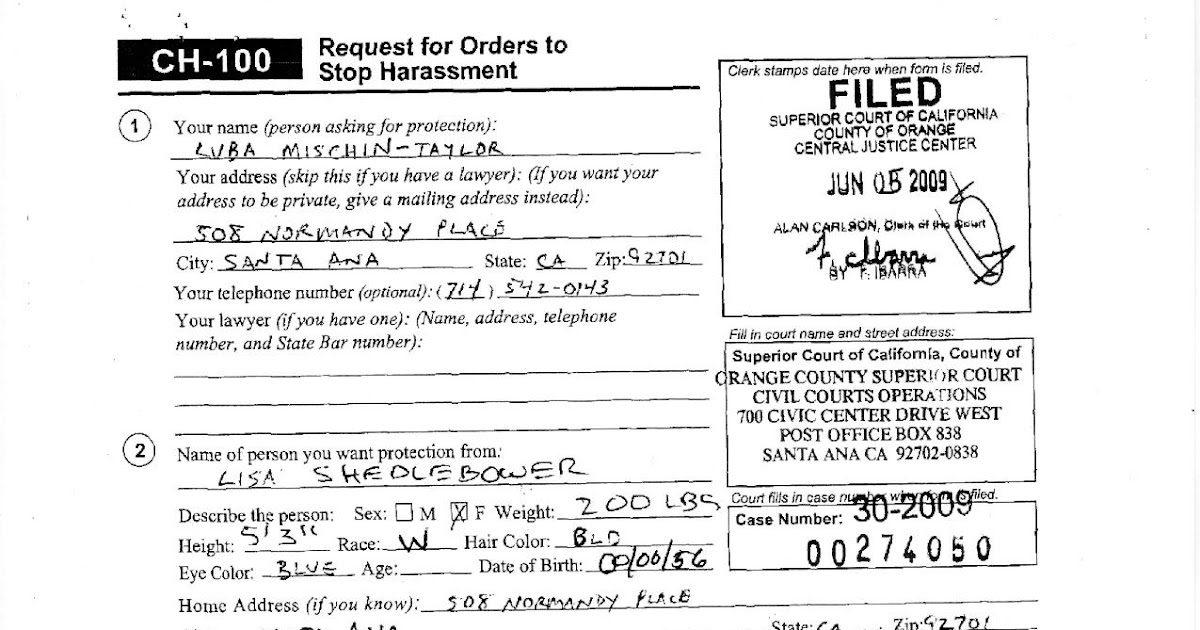 CH-100
Request for Orders to
Stop Harassment
Clerk stamps date here when form is filed.
FILED
SUPERIOR COURT OF CALIFORNIA
COUNTY OF ORANGE
CENTRAL JUSTICE CENTER
JUN 05 2009
ALAN CARLSON, Clerk of the Court
F. Ibarra
BY F. IBARRA
1 Your name (person asking for protection):
LUBA MISCHIN-TAYLOR
Your address (skip this if you have a lawyer): (If you want your
address to be private, give a mailing address instead):
508 NORMANDY PLACE
City: SANTA ANA State: CA Zip: 92701
Your telephone number (optional): (714) 542-0143
Your lawyer (if you have one): (Name, address, telephone
number, and State Bar number):
Fill in court name and street address:
Superior Court of California, County of
ORANGE COUNTY SUPERIOR COURT
CIVIL COURTS OPERATIONS
700 CIVIC CENTER DRIVE WEST
POST OFFICE BOX 838
SANTA ANA CA 92702-0838
2 Name of person you want protection from:
LISA SHEDLEBOWER
Describe the person: Sex: M X F Weight: 200 LBS
Height: 5' 3" Race: W Hair Color: BLD
Eye Color: BLUE Age: Date of Birth: 00/00/56
Home Address (if you know): 508 NORMANDY PLACE
Court fills in case number when form is filed.
Case Number: 30-2009
00274050
State: CA Zip: 92701